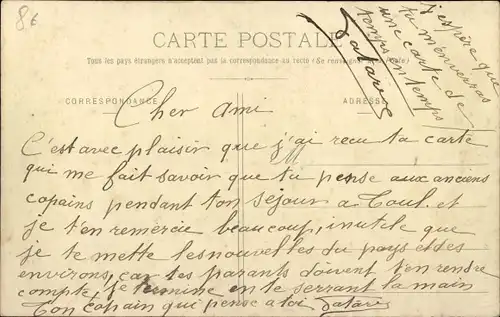 8€
CARTE POSTALE
Tous les pays étrangers n'acceptent pas la correspondance au recto (Se renseigner à la Poste)
CORRESPONDANCE
ADRESSE
j'espère que
tu m'enverras
une carte de
temps en temps
Datavé
Cher ami
C'est avec plaisir que j'ai recu ta carte
qui me fait savoir que tu pense aux anciens
copains pendant ton séjour a Toul. et
je t'en remercie beaucoup, inutele que
je te mette les nouvelles du pays et des
environs, car tes parants doivent t'en rendre
compte, je termine en te serrant la main
Ton copain qui pense a toi Datavé